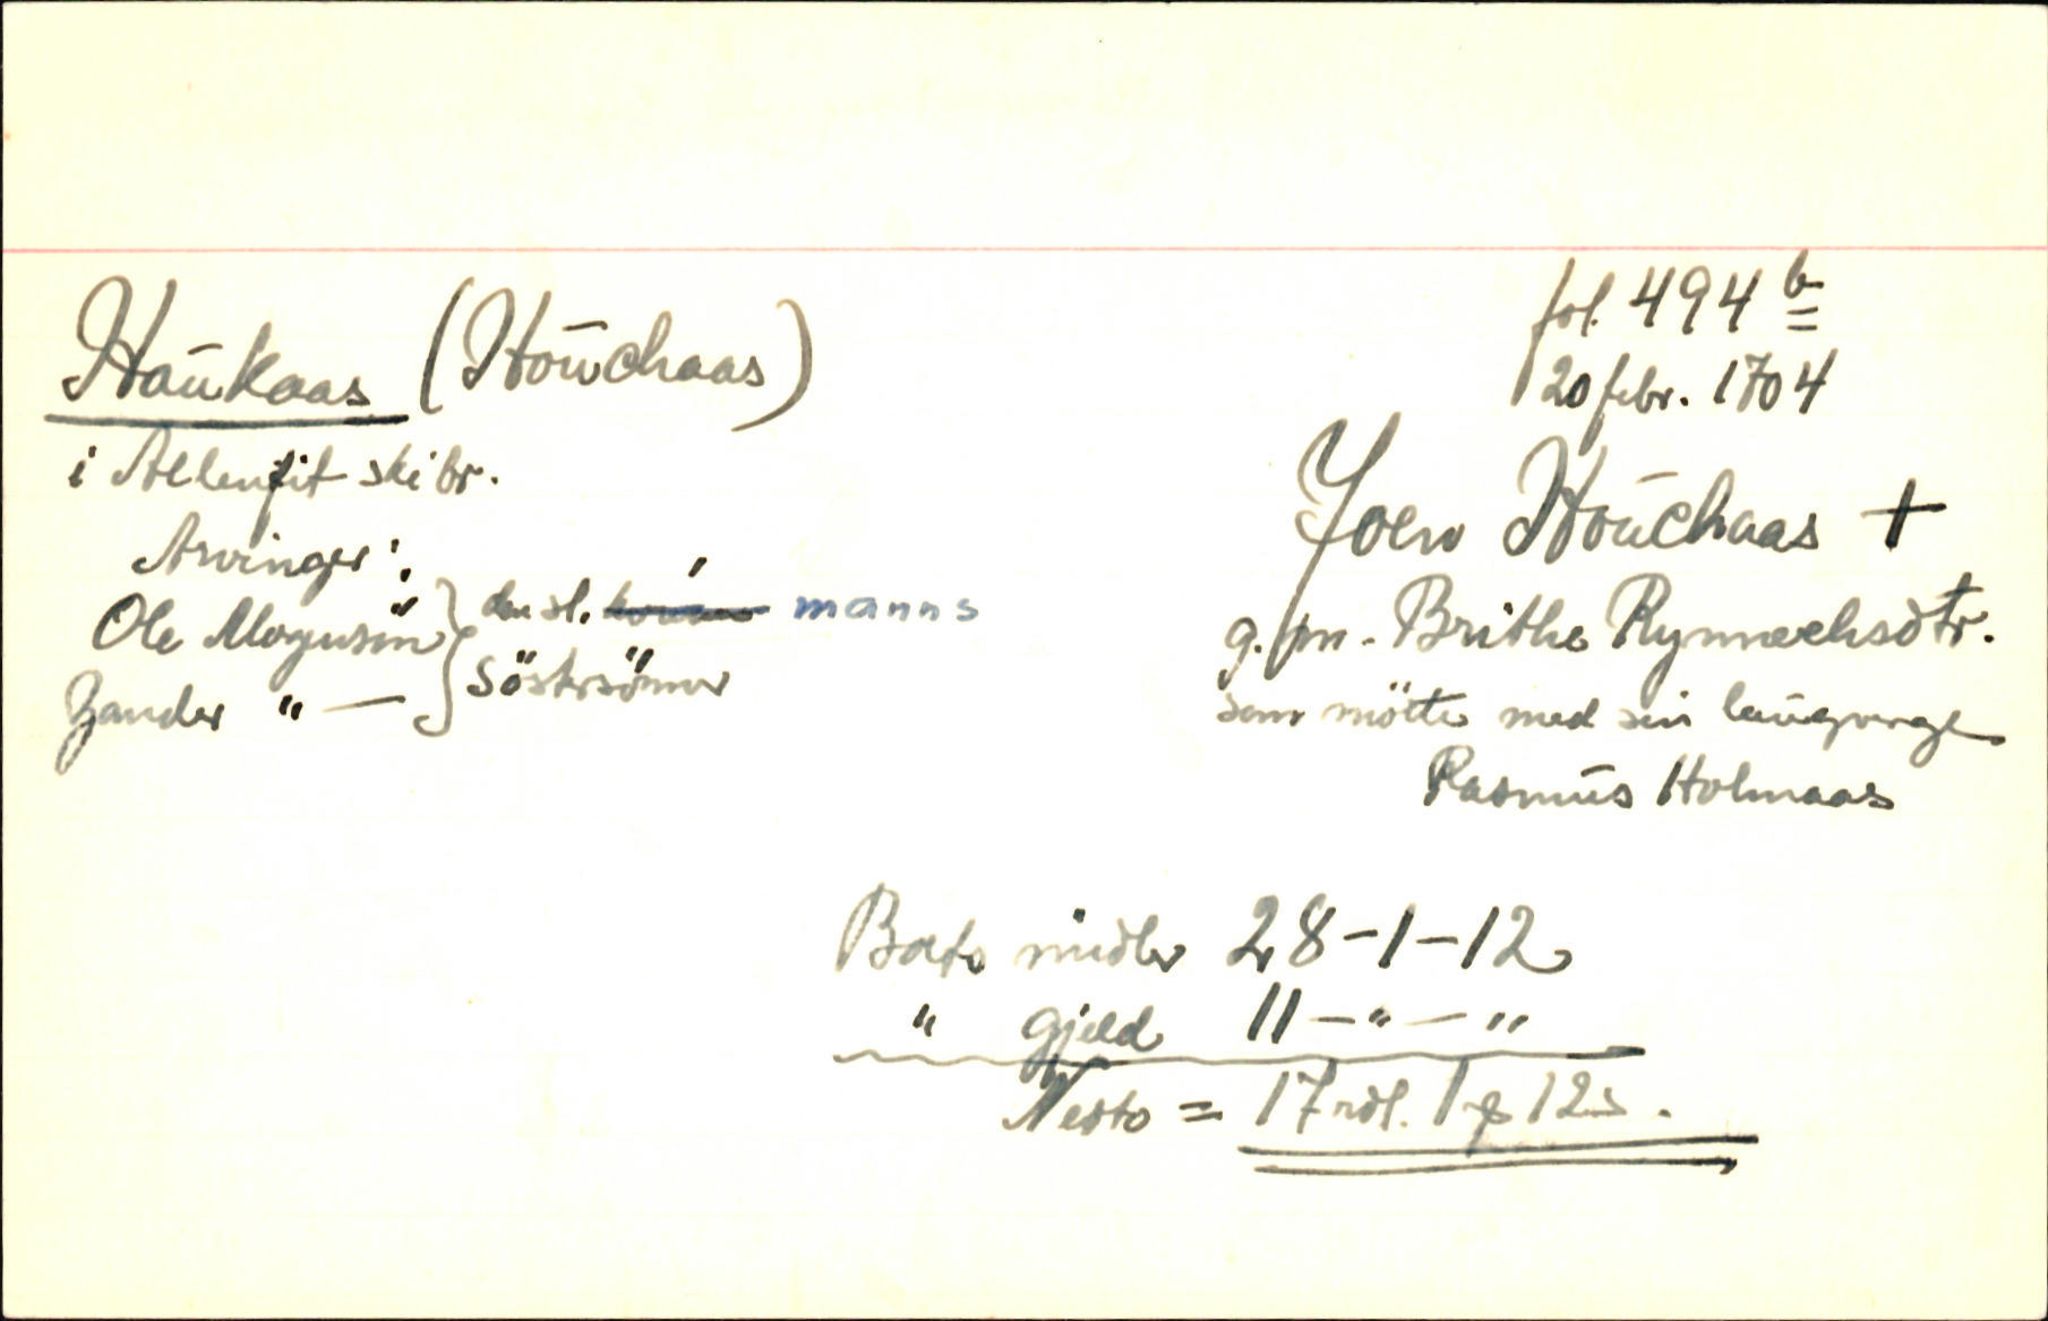 Haukaas (Houchaas)
i Allenfit skibr.
Arvinger:
Ole Mogensøn } den sl. manns
Zander " — } söstersönner
fol. 494 b
20 febr. 1704
Joen Houchaas +
g. m. Brithe Rynnechsdtr.
som mötte med sin laugverge
Rasmus Holmaas
Boets midler 28-1-12
" gjeld 11-"-"
Netto = 17 rdl. 1 12 s.